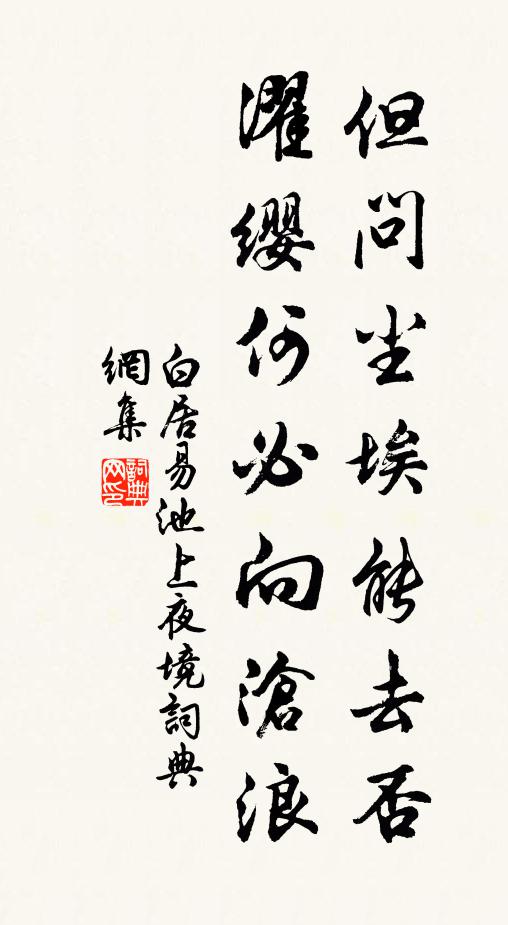 但問尘埃能去否
濯缨何必向滄浪
白居易池上夜境詞典
網集
詞典网印